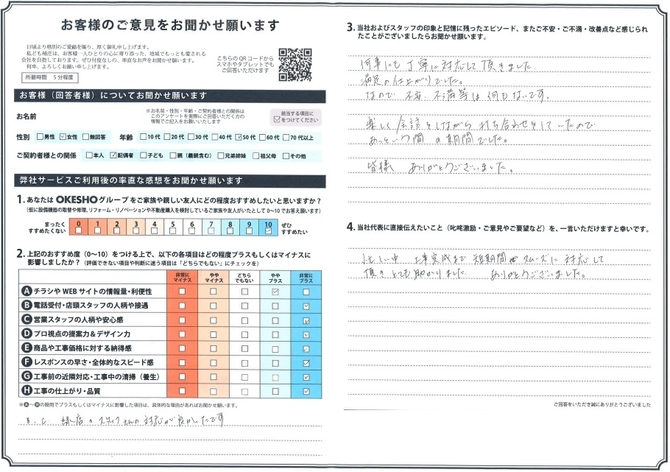 お客様のご意見をお聞かせ願います
日頃より格別のご愛顧を賜り、厚く御礼申し上げます。
何卒、よろしくお願い申し上げます。
所要時間 5分程度
こちらのQRコードから
スマホやタブレットでも
ご回答いただけます
お客様（回答者様）についてお聞かせ願います
お名前
該当する項目に
✓をつけてください
性別 男性 女性 無回答 年齢 10代 20代 30代 40代 50代 60代 70代以上
ご契約者様との関係 本人 配偶者 子ども 親（義親含む） 兄弟姉妹 祖父母 その他
弊社サービスご利用後の率直な感想をお聞かせ願います
1. あなたは OKESHOグループをご家族や親しい友人にどの程度おすすめしたいと思いますか？
（仮に設備機器の取替や修理、リフォーム・リノベーションや不動産購入を検討しているご家族や友人がいたとして0〜10でお答え願います）
まったく
すすめたくない
0 1 2 3 4 5 6 7 8 9 10
ぜひ
すすめたい
2. 上記のおすすめ度（0〜10）をつける上で、以下の各項目はどの程度プラスもしくはマイナスに
影響しましたか？（評価できない項目や判断に迷う項目は「どちらでもない」にチェックを）
非常に
マイナス
やや
マイナス
どちら
でもない
やや
プラス
非常に
プラス
A チラシやWEBサイトの情報量・利便性
B 電話受付・店頭スタッフの人柄や接遇
C 営業スタッフの人柄や安心感
D プロ視点の提案力&デザイン力
E 商品や工事価格に対する納得感
F レスポンスの早さ・全体的なスピード感
G 工事前の近隣対応・工事中の清掃（養生）
H 工事の仕上がり・品質
※A〜Hの設問でプラスもしくはマイナスに影響した項目は、具体的な理由があればお聞かせ願います。
スタッフさんの対応が良かったです
3. 当社およびスタッフの印象と記憶に残ったエピソード、またご不安・ご不満・改善点など感じられ
たことがございましたらお聞かせ願います。
何事にも丁寧に対応して頂きました
満足の仕上がりでした。
なので 不安、不満等は何もないです。
楽しく会話をしながら打ち合わせをしていたので
あっという間の期間でした。
皆様 ありがとうございました。
4. 当社代表に直接伝えたいこと（叱咤激励・ご意見やご要望など）を、一言いただけますと幸いです。
工事完成まで 短期間でスムーズに対応して
頂きとても助かりました ありがとうございました。
ご回答をいただき誠にありがとうございました